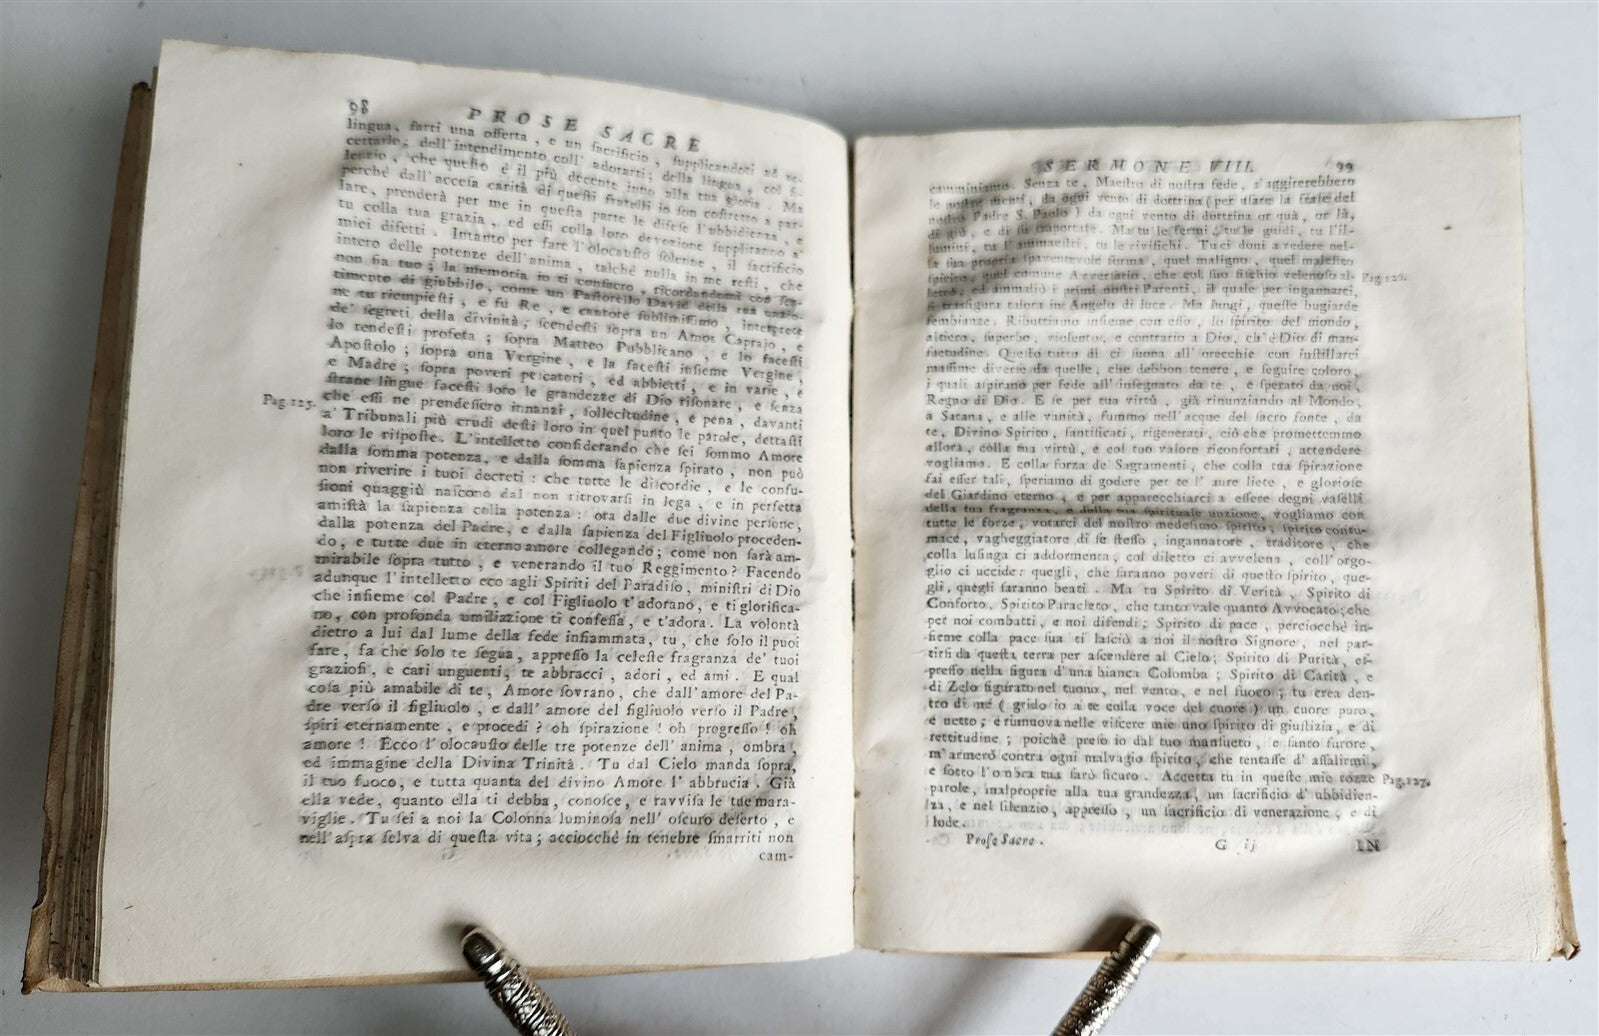 98 PROSE SACRE
lingua, farti una offerta, e un sacrificio, supplicandoti ad ac-
certarlo; dell'intendimento coll' adorarti; della lingua, col si-
lenzio, che questo è il più decente inno alla tua gloria. Ma
perchè dall'accesa carità di questi fratelli io son costretto a par-
lare, prenderà per me in questa parte le difese l'ubbidienza, e
tu colla tua grazia, ed essi colla loro devozione suppliranno a'
miei difetti. Intanto per fare l'olocausto solenne, il sacrificio
intero delle potenze dell'anima, talchè nulla in me resti, che
non sia tuo; la memoria io ti consacro, ricordandomi con sen-
timento di giubbilo, come un Pastorello David della tua unzio-
ne tu riempiesti, e fu Re, e cantore sublimissimo, interprete
de' segreti della divinità; scendesti sopra un Amos Caprajo, e
lo rendesti profeta; sopra Matteo Pubblicano, e lo facesti
Apostolo; sopra una Vergine, e la facesti insieme Vergine,
e Madre; sopra poveri pescatori, ed abbietti, e in varie, e
strane lingue facesti loro le grandezze di Dio risonare, e senza
Pag. 125. che essi ne prendessero innanzi, sollecitudine, e pena, davanti
a' Tribunali più crudi desti loro in quel punto le parole, dettasti
loro le risposte. L'intelletto considerando che sei sommo Amore
dalla somma potenza, e dalla somma sapienza spirato, non può
non riverire i tuoi decreti: che tutte le discordie, e le confu-
sioni quaggiù nascono dal non ritrovarsi in lega, e in perfetta
amistà la sapienza colla potenza: ora dalle due divine persone,
dalla potenza del Padre, e dalla sapienza del Figliuolo proceden-
do, e tutte due in eterno amore collegando; come non sarà am-
mirabile sopra tutto, e venerando il tuo Reggimento? Facendo
adunque l'intelletto eco agli Spiriti del Paradiso, ministri di Dio
che insieme col Padre, e col Figliuolo t'adorano, e ti glorifica-
no, con profonda umiliazione ti confessa, e t'adora. La volontà
dietro a lui dal lume della fede infiammata, tu, che solo il puoi
fare, fa che solo te segua, appresso la celeste fragranza de' tuoi
graziosi, e cari unguenti, te abbracci, adori, ed ami. E qual
cosa più amabile di te, Amore sovrano, che dall'amore del Pa-
dre verso il figliuolo, e dall' amore del figliuolo verso il Padre,
spiri eternamente, e procedi? oh spirazione! oh progresso! oh
amore! Ecco l'olocausto delle tre potenze dell' anima, ombra,
ed immagine della Divina Trinità. Tu dal Cielo manda sopra,
il tuo fuoco, e tutta quanta del divino Amore l' abbrucia. Già
ella vede, quanto ella ti debba, conosce, e ravvisa le tue mara-
viglie. Tu sei a noi la Colonna luminosa nell' oscuro deserto, e
nell'aspra selva di questa vita; acciocchè in tenebre smarriti non
cam-
SERMONE VIII. 99
camminiamo. Senza te, Maestro di nostra fede, s'aggirerebbero
le nostre menti, da ogni vento di dottrina (per usare la frase del
nostro Padre S. Paolo) da ogni vento di dottrina or quà, or là,
di giù, e di su traportate. Ma tu le fermi, tu le guidi, tu l'il-
lumini, tu l'ammaestri, tu le vivifichi. Tu ci doni a vedere nel-
la sua propria spaventevole forma, quel maligno, quel malefico
spirito, quel comune Avversario, che col suo fischio velenoso al- Pag. 126.
lettò, ed ammaliò i primi nostri Parenti, il quale per ingannarci,
si trasfigura talora in Angelo di luce. Ma fungi, queste bugiarde
sembianze. Ributtiamo insieme con esso, lo spirito del mondo,
altiero, superbo, violento, e contrario a Dio, ch' è Dio di man-
suetudine. Questo tutto dì ci suona all' orecchie con instillarci
massime diverse da quelle, che debbon tenere, e seguire coloro,
i quali aspirano per fede all'insegnato da te, e sperato da noi,
Regno di Dio. E se per tua virtù, già rinunziando al Mondo,
a Satana, e alle vanità, fummo nell'acque del sacro fonte, da
te, Divino Spirito, santificati, rigenerati, ciò che promettemmo
allora, colla tua virtù, e col tuo valore riconfortati, attendere
vogliamo. E colla forza de' Sagramenti, che colla tua spirazione
fai esser tali, speriamo di godere per te l' aure liete, e gloriose
del Giardino eterno, e per apparecchiarci a essere degni vaselli
della tua fragranza, e della tua spirituale unzione, vogliamo con
tutte le forze, votarci del nostro medesimo spirito; spirito contu-
mace, vagheggiatore di se stesso, ingannatore, traditore, che
colla lusinga ci addormenta, col diletto ci avvelena, coll'orgo-
glio ci uccide: quegli, che saranno poveri di questo spirito, que-
gli, quegli saranno beati. Ma tu Spirito di Verità, Spirito di
Conforto, Spirito Paracleto, che tanto vale quanto Avvocato; che
per noi combatti, e noi difendi; Spirito di pace, perciocchè in-
sieme colla pace sua ti lasciò a noi il nostro Signore, nel par-
tirsi da questa terra per ascendere al Cielo; Spirito di Purità, es-
presso nella figura d'una bianca Colomba; Spirito di Carità, e
di Zelo figurato nel tuono, nel vento, e nel fuoco; tu crea den-
tro di me (grido io a te colla voce del cuore) un cuore puro,
e netto; e rinnuova nelle viscere mie uno spirito di giustizia, e di
rettitudine; poichè preso io dal tuo mansueto, e santo furore,
m'armerò contra ogni malvagio spirito, che tentasse d' assalirmi,
e sotto l'ombra tua sarò sicuro. Accetta tu in queste mie rozze Pag. 127.
parole, inalproprie alla tua grandezza, un sacrificio d' ubbidien-
za, e nel silenzio, appresso, un sacrificio di venerazione, e di
lode.
Prose Sacre. G ij IN